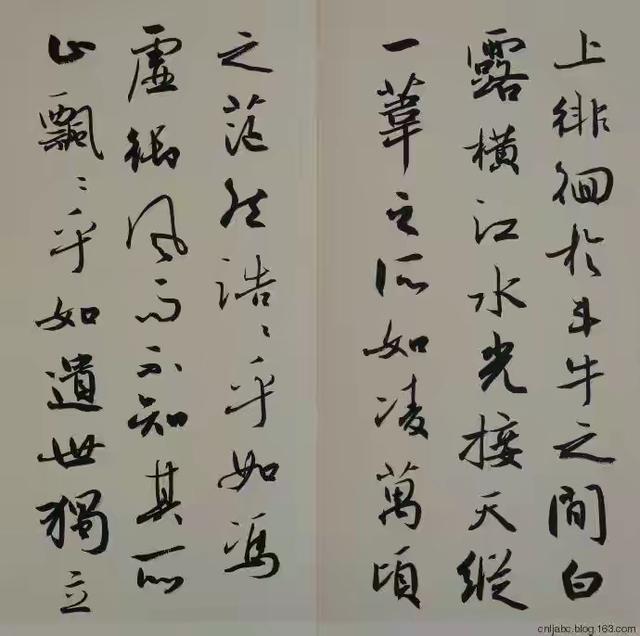 上徘徊於斗牛之間白
露橫江水光接天縱
一葦之所如凌萬頃
之茫然浩〻乎如馮
虛御風而不知其所
止飄〻乎如遺世獨立
cnljabc.blog.163.com